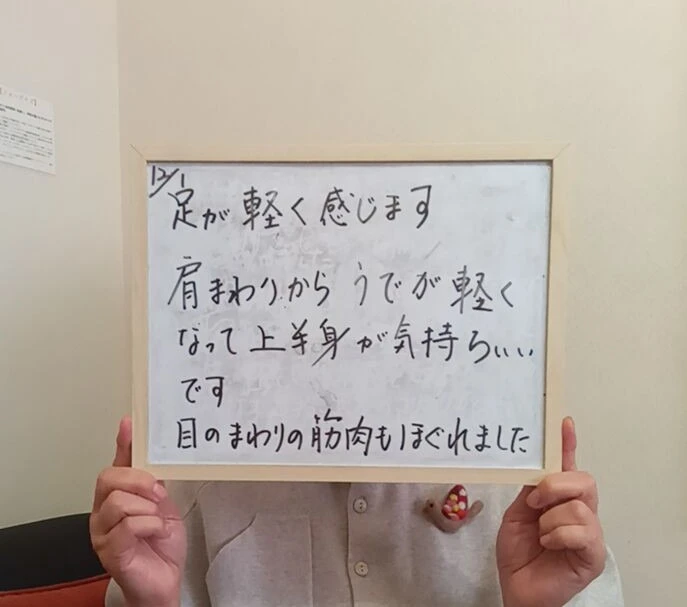 12/1
足が軽く感じます
肩まわりから うでが軽く
なって上半身が気持ちいい
です
目のまわりの筋肉もほぐれました